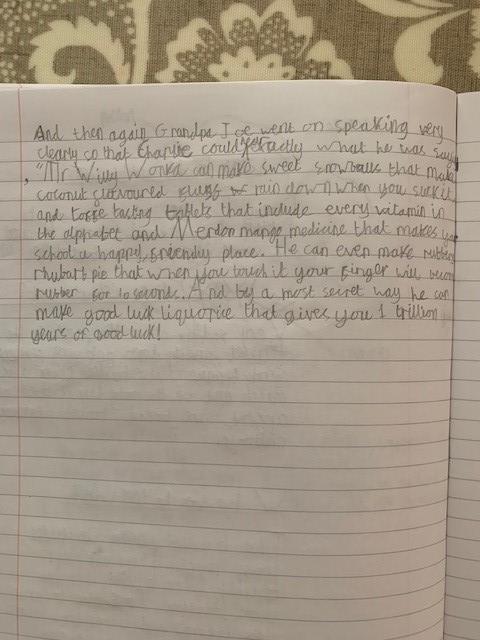 And then again Grandpa Joe went on speaking very
clearly so that Charlie could exactly what he was say
"Mr Willy Wonka can make sweet snowballs that make
coconut flavoured rain down when you suck it
and toffe tasting tablets that include every vitamin in
the alphabet and Merdon mange medicine that makes
school a happy, friendly place. He can even make rubbery
rhubarb pie that when you touch it your finger will become
rubber for 10 seconds. And by a most secret way he can
make good luck liquorice that gives you 1 trillion
years of good luck!